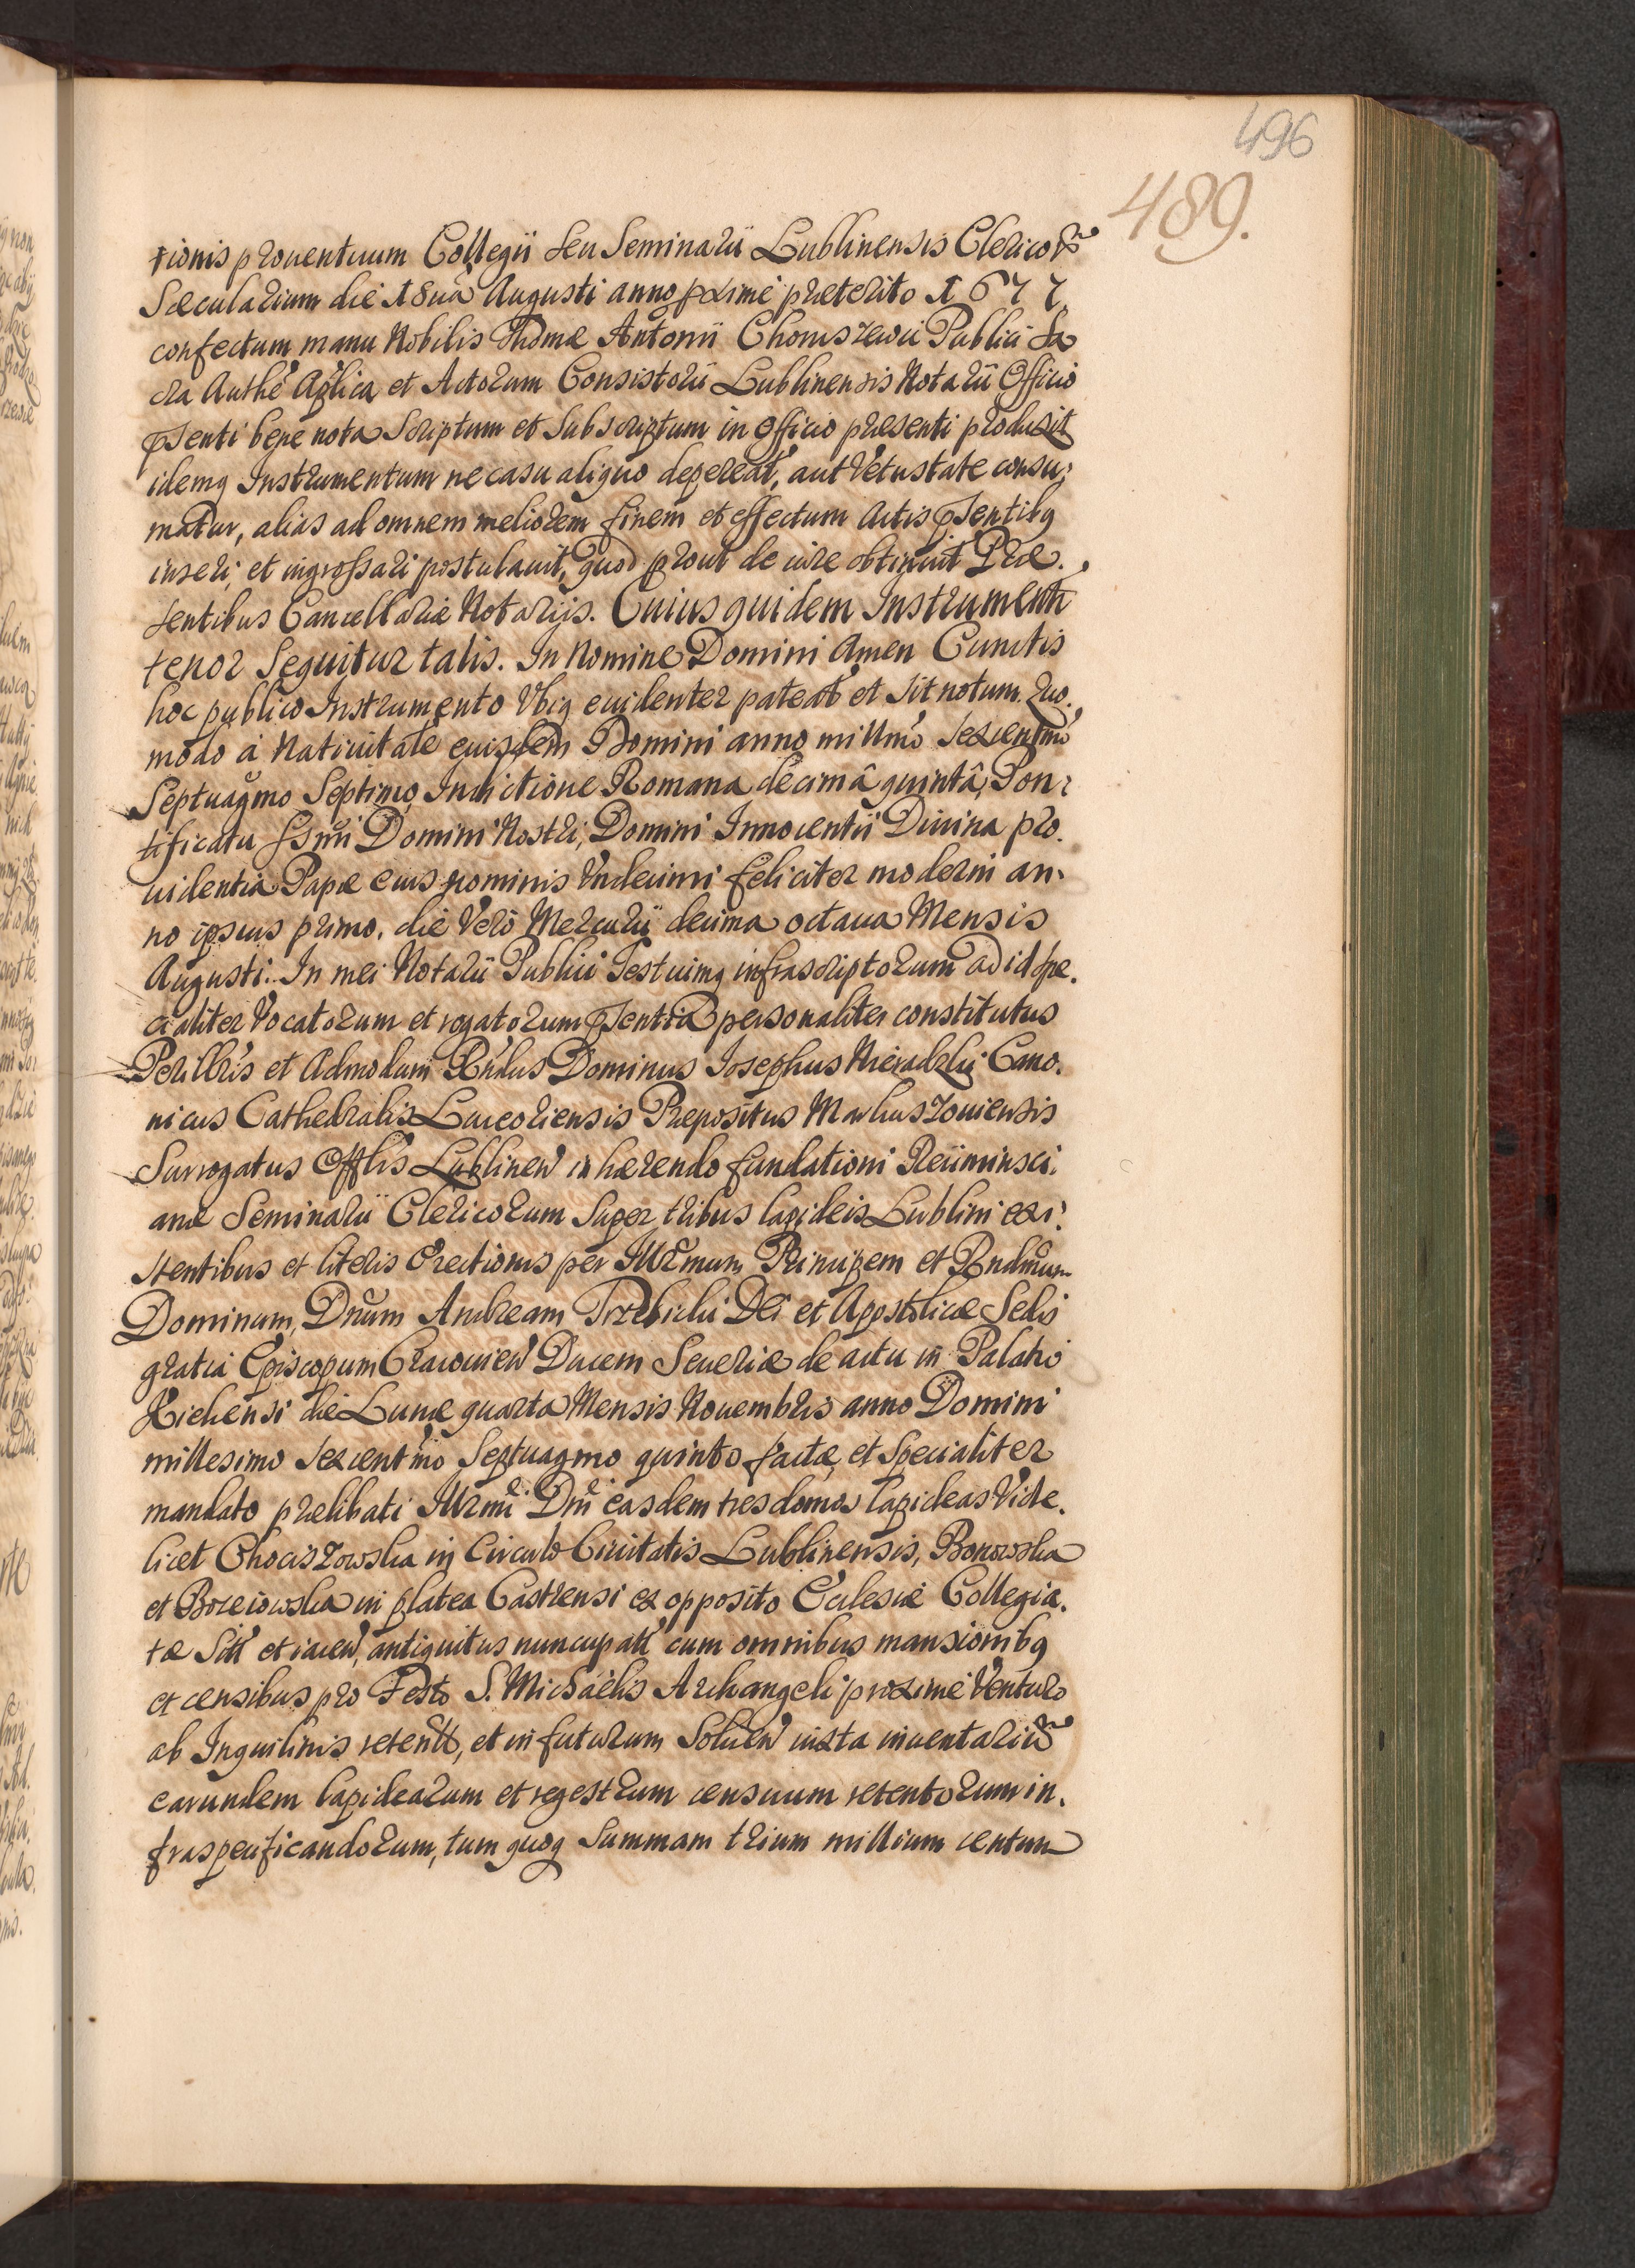 496
489.
tionis prouentuum Collegii seu Seminarii Lublinensis Clericorũ
Sæcularium die 18uâ Augusti anno pximè præterito 1677
confectum manu Nobilis Thomæ Antonii Publici Sa
cra Authẽ Aplica et Actorum Consistorii Lublinensis Notarii Officio
psenti bene nota scriptum et subscriptum in officio præsenti produxit
idemq Instrumentum ne casu aliquo depereat, aut vetustate consu,
matur, alias ad omnem meliorem finem et effectum Actis psentibq
inseri, et ingrossari postulauit, quod prout de iure obtinuit Præ.
sentibus Cancellariæ Notarijs. Cuius quidem Instrumenti
tenor sequitur talis. In Nomine Domini Amen Cunctis
hoc publico Instrumento Vbiq euidenter pateat et sit notum. Quo.
modo à Natiuitate eiusdem Domini anno millmo sexcentmo
Septuagmo Septimo, Indictione Romana decimâ quintâ, Pon:
tificatu SSmi Domini Nostri, Domini Innocentii Diuina pro.
uidentia Papæ eius nominis Vndecimi feliciter moderni an.
no ipsius primo, die Verò Mercurii decima octaua Mensis
Augusti. In mei Notarii Publici Testiumq infrascriptorum ad id spe.
cialiter Vocatorum et rogatorum psentia personaliter constitutus
Perillris et Admodum Rndus Dominus Josephus Cano.
nicus Cathedralis Luceoriensis Præpositus Markuszouiensis
Surrogatus Offlis Lublinen inhærendo fundationi
anæ Seminarii Clericorum super tribus lapideis Lublini exi:
stentibus et literis Erectionis per Illrmum Principem et Rndmum
Dominum, Dnum Andream Trzebicki Dei et Apostolicæ Sedis
gratia Episcopum Cracouien Ducem Seueriæ de actu in Palatio
Kielcensi die Lunæ quarta Mensis Nouembris anno Domini
millesimo sexcentmo Septuagmo quinto factæ, et specialiter
mandato prælibati Illrmi Dni easdem tres domos lapideas Vide.
licet Chociszowska in Circulo Ciuitatis Lublinensis, Bonowska
et in platea Castrensi ex opposito Ecclesiæ Collegia.
tæ Sitt et iacen, antiquitus nuncupatt cum omnibus mansionibq
et censibus pro Festo S. Michaelis Archangeli proximè Venturo
ab Inquilinis retentt, et in futurum Soluen iuxta inuentariũ
earundem lapidearum et regestrum censuum retentorum in.
fraspecificandorum, tum quoq summam trium millium centum